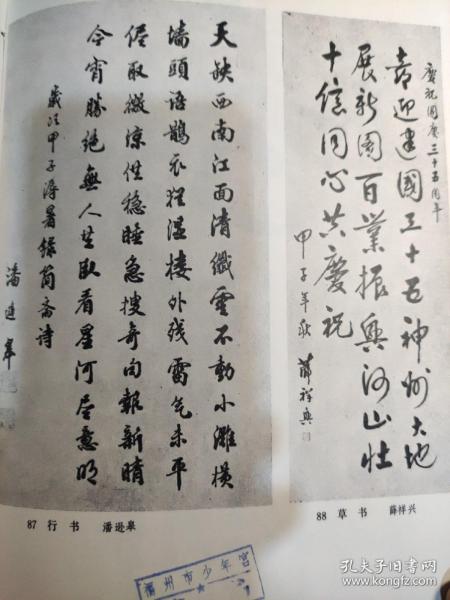 天缺西南江面清纖雲不動小灘横
墙頭語鵲衣猶溼樓外残雷气未平
儘取微涼供稳睡急搜奇句報新晴
今宵勝絶無人共卧看星河尽意明
歲次甲子溽暑緑筠斋诗
潘逊皋
87 行书 潘逊皋
慶祝國慶三十五周年
喜迎建國三十五神州大地
展新圖百業振興河山壮
十億同心共慶祝
甲子年秋 薛祥興
88 草书 薛祥兴
福州市少年宫